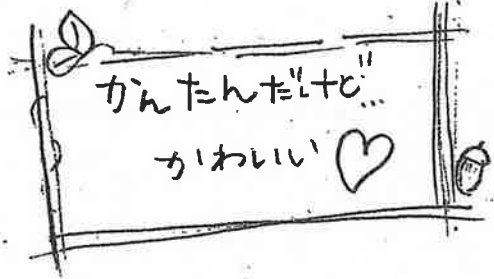 かんたんだけど…
かわいい♡